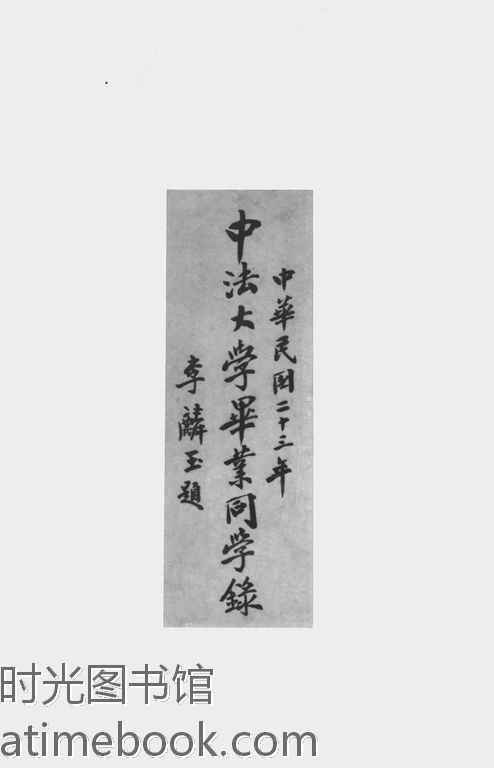 中華民国二十三年
中法大学畢業同学錄
李麟玉題
时光图书馆
atimebook.com